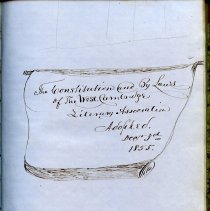 The Constitution and By Laws
of The West Cambridge
Literary Association
Adopted.
Dec. 3rd
1855.